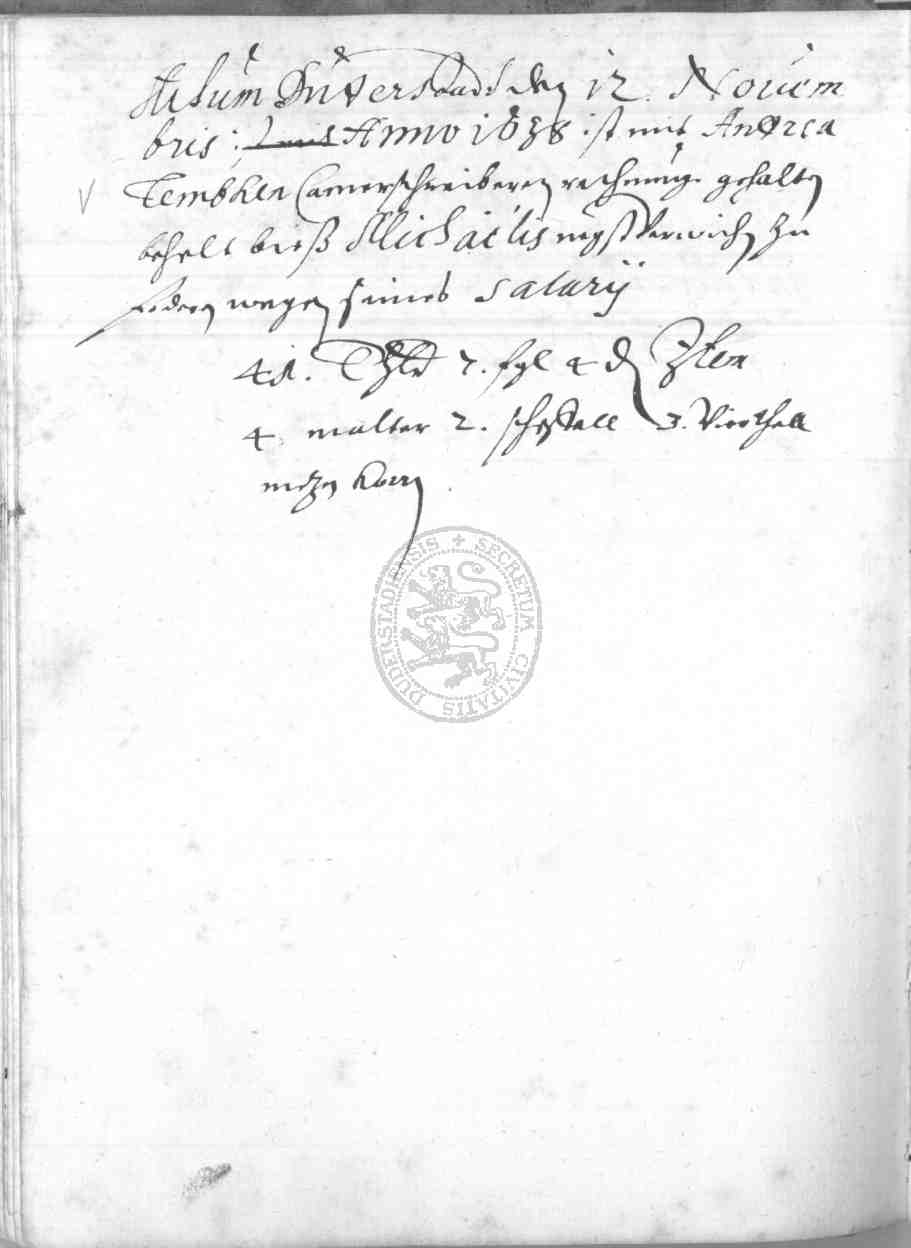 Actum Duderstadt den 12. Novem
bris: Anno 1638 ist mit Andrea
Tembken Camerschreiberen rechnung gehalten
behelt bieß Michaëlis negst verwichen zu
foderen wegen seines Salarij
41. Thlr 7. sgl 4 d Item
4. malter 2. scheffell 3. Vierthell
metzen korn
DUDERSTADIENSIS + SECRETUM CIVITATIS